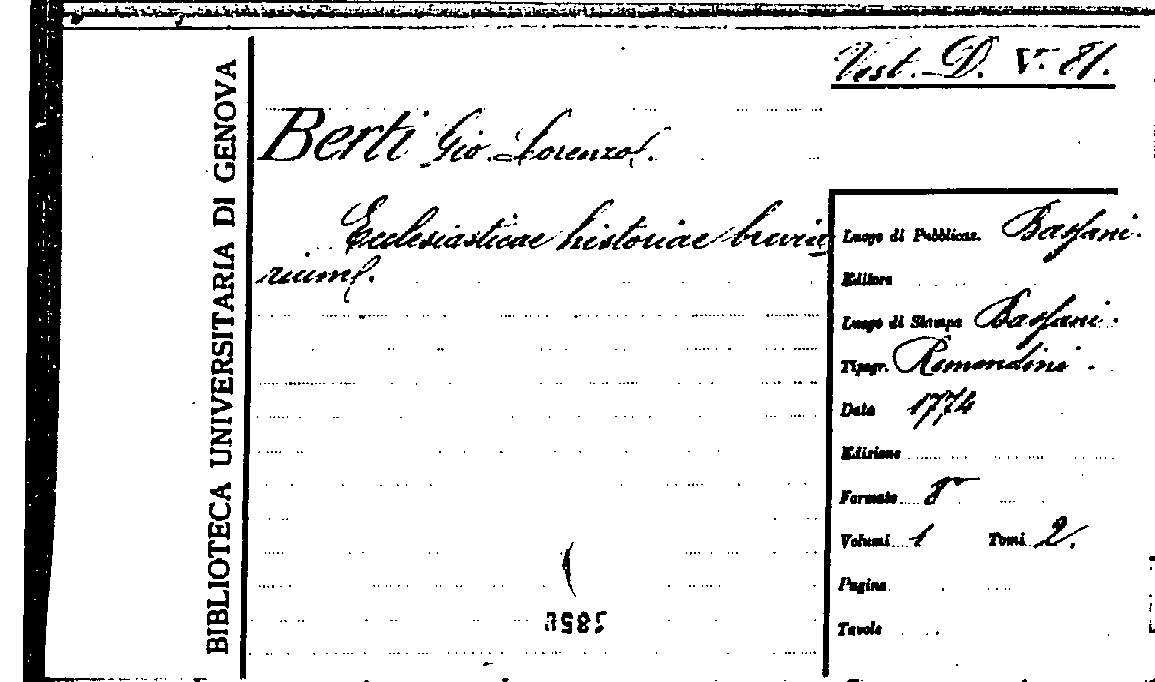 BIBLIOTECA UNIVERSITARIA DI GENOVA
Vest. D. V. 81.
Berti Gio Lorenzo.
Ecclesiasticae historiae brevia
rium.
Luogo di Pubblicaz. Bassani.
Editore
Luogo di Stampa Bassani.
Tipogr. Remondini.
Data 1774
Edizione
Formato 8º
Volumi 1 Tomi 2.
Pagine
Tavole